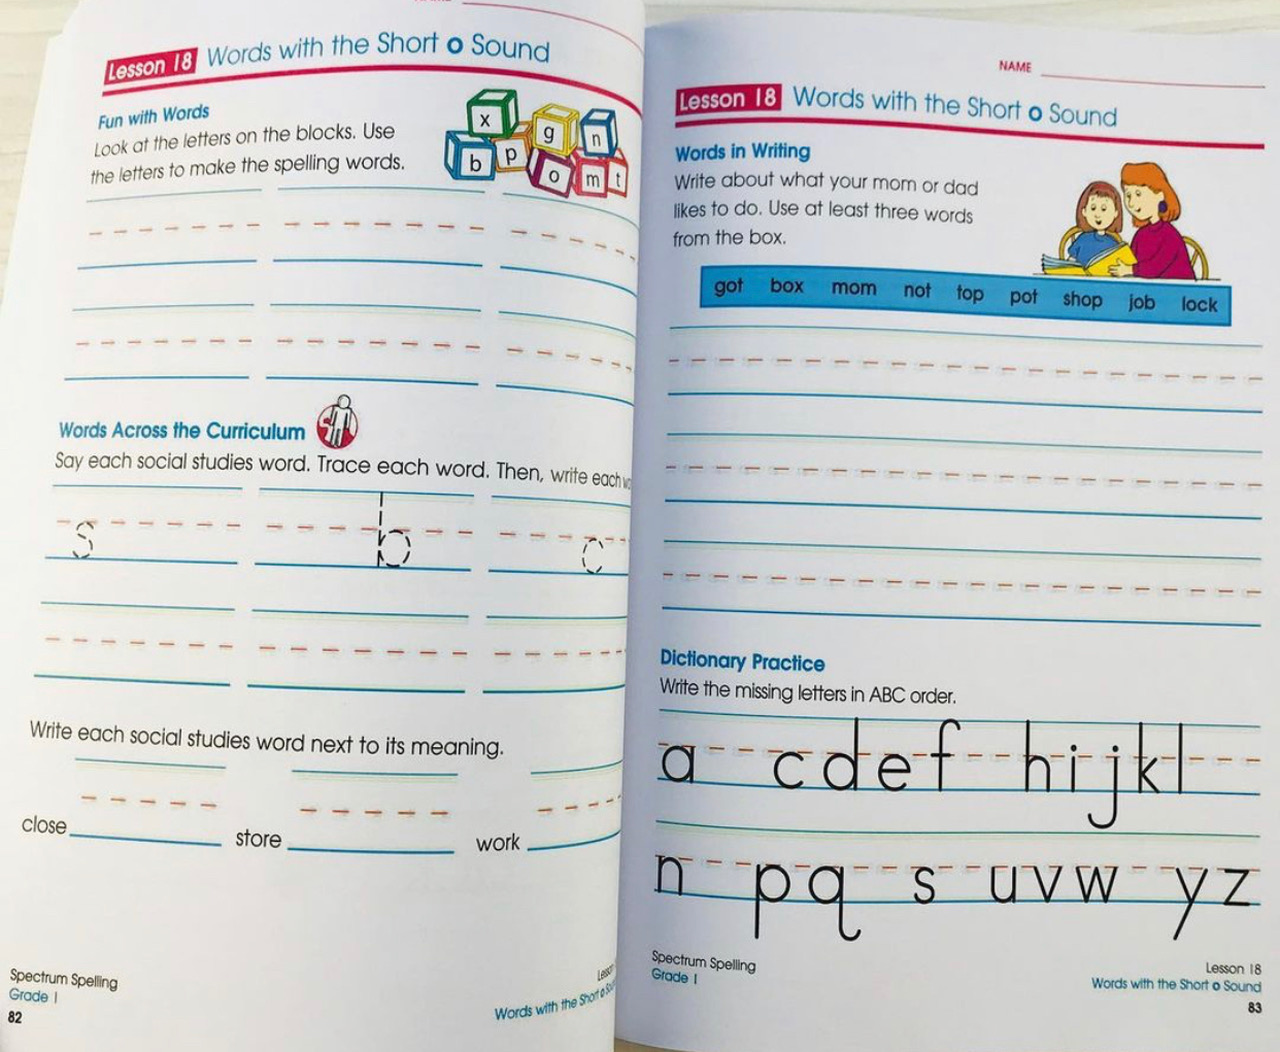 Lesson 18 Words with the Short o Sound
Fun with Words
Look at the letters on the blocks. Use
the letters to make the spelling words.
x
g
n
b
p
o
m
t
Words Across the Curriculum
Say each social studies word. Trace each word. Then, write each
s b c
Write each social studies word next to its meaning.
close store work
Spectrum Spelling
Grade 1
82
Words with the Short o
NAME
Lesson 18 Words with the Short o Sound
Words in Writing
Write about what your mom or dad
likes to do. Use at least three words
from the box.
got box mom not top pot shop job lock
Dictionary Practice
Write the missing letters in ABC order.
a c d e f h i j k l
n p q s u v w y z
Spectrum Spelling
Grade 1
Lesson 18
Words with the Short o Sound
83